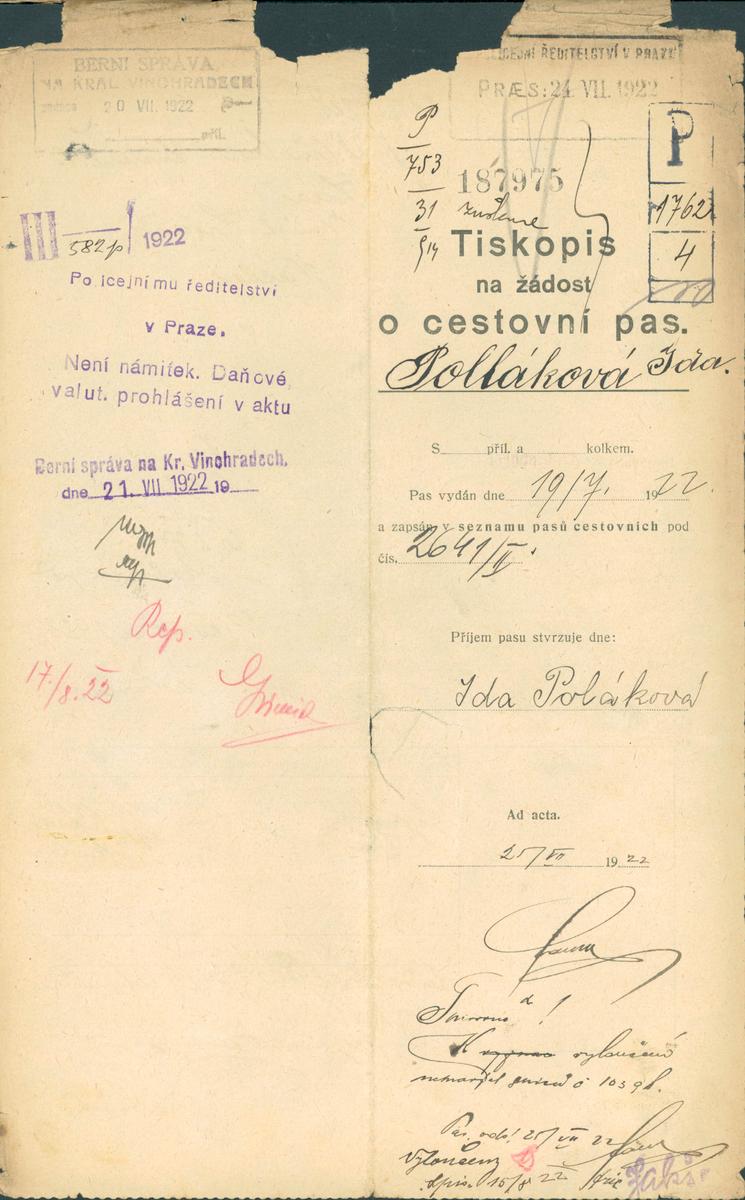 BERNÍ SPRÁVA
NA KRÁL. VINOHRADECH
20 VII. 1922
III 582p/1922
Policejnímu ředitelství
v Praze.
Není námitek. Daňové
valut. prohlášení v aktu
Berní správa na Kr. Vinohradech,
dne 21. VII 1922 19
Rep.
17./8. 22
POLICEJNÍ ŘEDITELSTVÍ V PRAZE
PRÆS: 24. VII. 1922
P
753
31
187975
P
1762
4
Tiskopis
na žádost
o cestovní pas.
Polláková Ida.
S příl. a kolkem.
Pas vydán dne 19/7. 1922.
a zapsán v seznamu pasů cestovních pod
čís. 2641/II.
Příjem pasu stvrzuje dne:
Ida Poláková
Ad acta.
25/VII 1922
25/VII 22
15/8 22